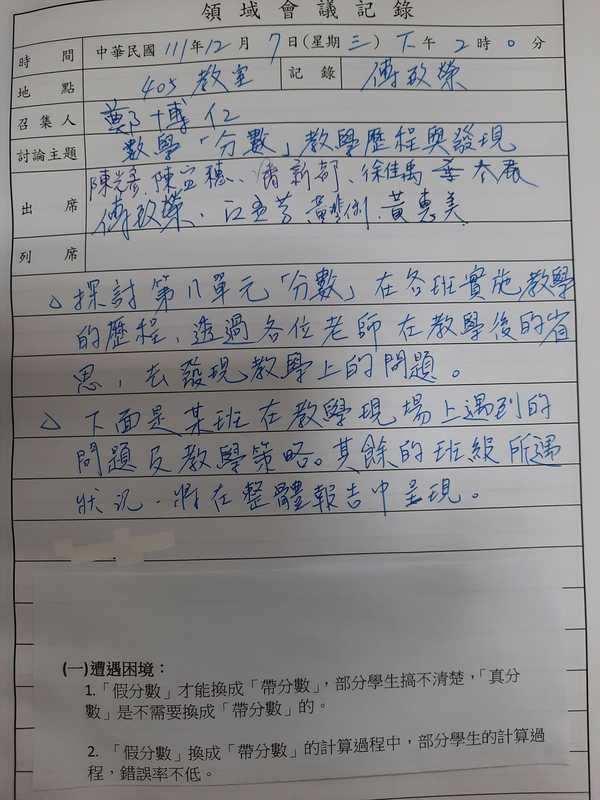 領域會議記錄
時間 中華民國 111年12月7日(星期三)下午2時0分
地點 405教室 記錄 傅政榮
召集人 鄭博仁
討論主題 數學「分數」教學歷程與發現
出席 陳光彥、陳宜穗、新部、徐佳禹
傅政榮、江、黃、黃惠美
列席
△探討第八單元「分數」在各班實施教學
的歷程、透過各位老師在教學後的省
思,去發現教學上的問題。
△下面是某班在教學現場上遇到的
問題及教學策略。其餘的班級所遇
狀況、將在整體報告中呈現。
(一)遭遇困境：
1.「假分數」才能換成「帶分數」，部分學生搞不清楚，「真分
數」是不需要換成「帶分數」的。
2. 「假分數」換成「帶分數」的計算過程中，部分學生的計算過
程，錯誤率不低。